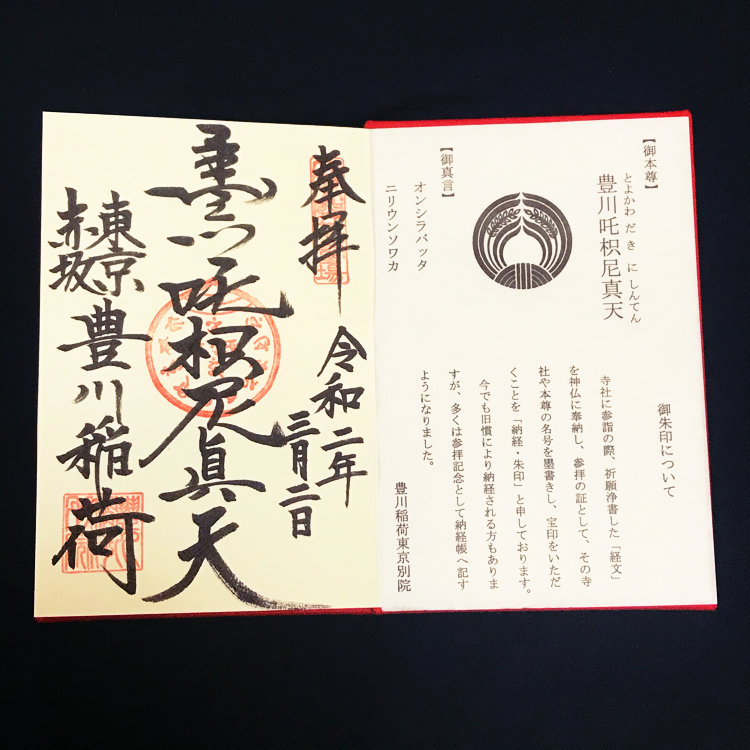 【御本尊】
とよかわ だ き に しんてん
豊川吒枳尼真天
【御真言】
オンシラバッタ
ニリウンソワカ
御朱印について
寺社に参詣の際、祈願浄書した「経文」
を神仏に奉納し、参拝の証として、その寺
社や本尊の名号を墨書きし、宝印をいただ
くことを「納経・朱印」と申しております。
今でも旧慣により納経される方もありま
すが、多くは参拝記念として納経帳へ記す
ようになりました。
豊川稲荷東京別院
奉拝
令和二年
三月二日
吒枳尼眞天
東京
赤坂
豊川稲荷